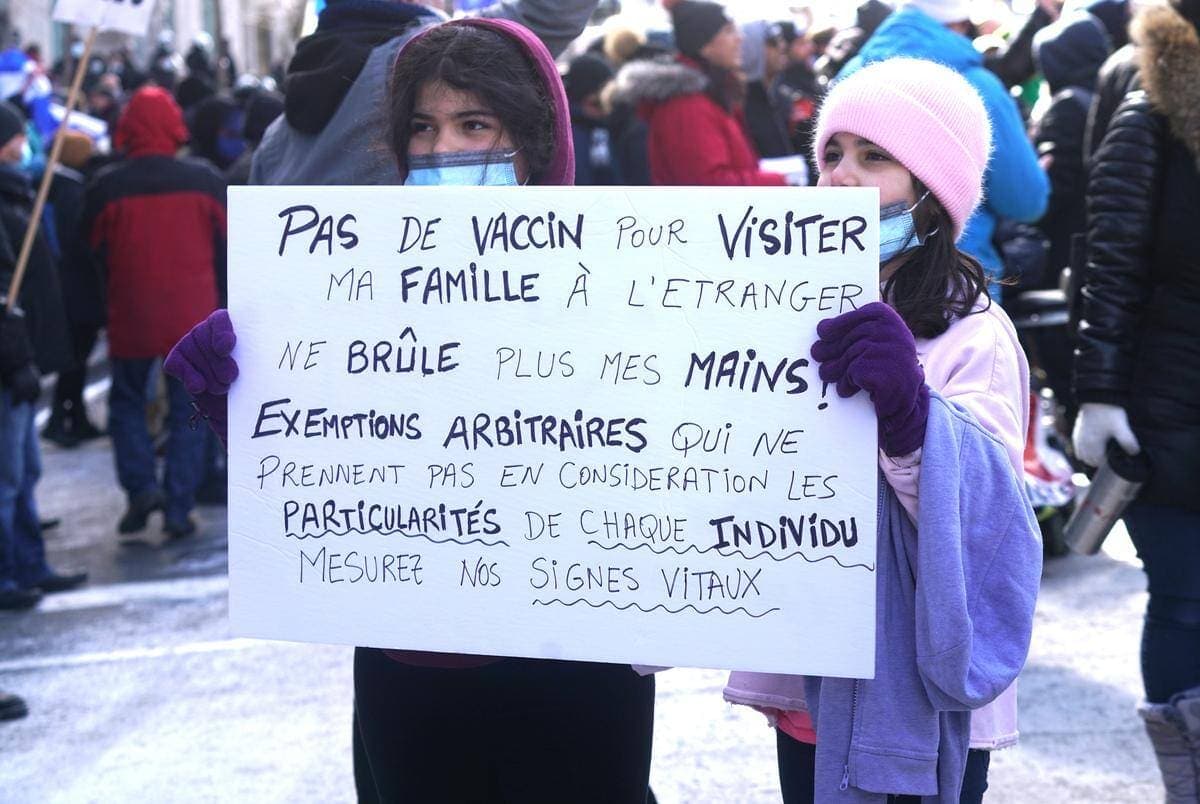 PAS DE VACCIN POUR VISITER
MA FAMILLE À L'ETRANGER
NE BRÛLE PLUS MES MAINS!
EXEMPTIONS ARBITRAIRES QUI NE
PRENNENT PAS EN CONSIDERATION LES
PARTICULARITÉS DE CHAQUE INDIVIDU
MESUREZ NOS SIGNES VITAUX